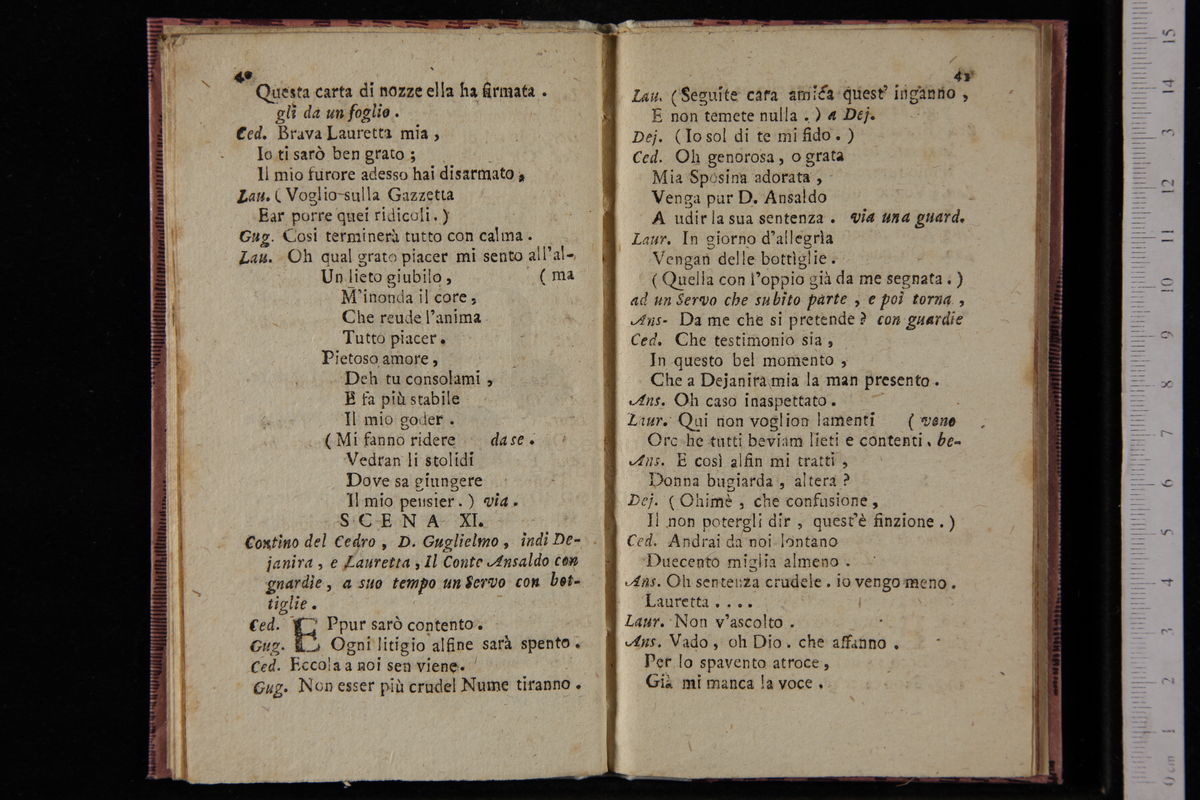 40
Questa carta di nozze ella ha firmata .
gli da un foglio .
Ced. Brava Lauretta mia ,
Io ti sarò ben grato ;
Il mio furore adesso hai disarmato ,
Lau. ( Voglio sulla Gazzetta
Ear porre quei ridicoli . )
Gug. Così terminerà tutto con calma .
Lau. Oh qual grato piacer mi sento all'al-
Un lieto giubilo , ( ma
M'inonda il core ,
Che reude l'anima
Tutto piacer .
Pietoso amore ,
Deh tu consolami ,
E fa più stabile
Il mio goder .
( Mi fanno ridere da se .
Vedran li stolidi
Dove sa giungere
Il mio pensier . ) via .
SCENA XI.
Contino del Cedro , D. Guglielmo , indi De-
janira , e Lauretta , Il Conte Ansaldo con
gnardie , a suo tempo un Servo con bot-
tiglie .
Ced. EPpur sarò contento .
Gug. Ogni litigio alfine sarà spento .
Ced. Eccola a noi sen viene .
Gug. Non esser più crudel Nume tiranno .
41
Lau. ( Seguite cara amica quest' inganno ,
E non temete nulla . ) a Dej.
Dej. ( Io sol di te mi fido . )
Ced. Oh genorosa , o grata
Mia Sposina adorata ,
Venga pur D. Ansaldo
A udir la sua sentenza . via una guard.
Laur. In giorno d'allegrìa
Vengan delle bottiglie .
( Quella con l'oppio già da me segnata . )
ad un Servo che subito parte , e poi torna ,
Ans- Da me che si pretende ? con guardie
Ced. Che testimonio sia ,
In questo bel momento ,
Che a Dejanira mia la man presento .
Ans. Oh caso inaspettato .
Laur. Qui non voglion lamenti ( vono
Orc he tutti beviam lieti e contenti . be-
Ans. E così alfin mi tratti ,
Donna bugiarda , altera ?
Dej. ( Ohimè , che confusione ,
Il non potergli dir , quest'è finzione . )
Ced. Andrai da noi lontano
Duecento miglia almeno .
Ans. Oh sentenza crudele . io vengo meno .
Lauretta . . . .
Laur. Non v'ascolto .
Ans. Vado , oh Dio . che affanno .
Per lo spavento atroce ,
Già mi manca la voce .
15
14
13
12
11
10
9
8
7
6
5
4
3
2
1
0 cm